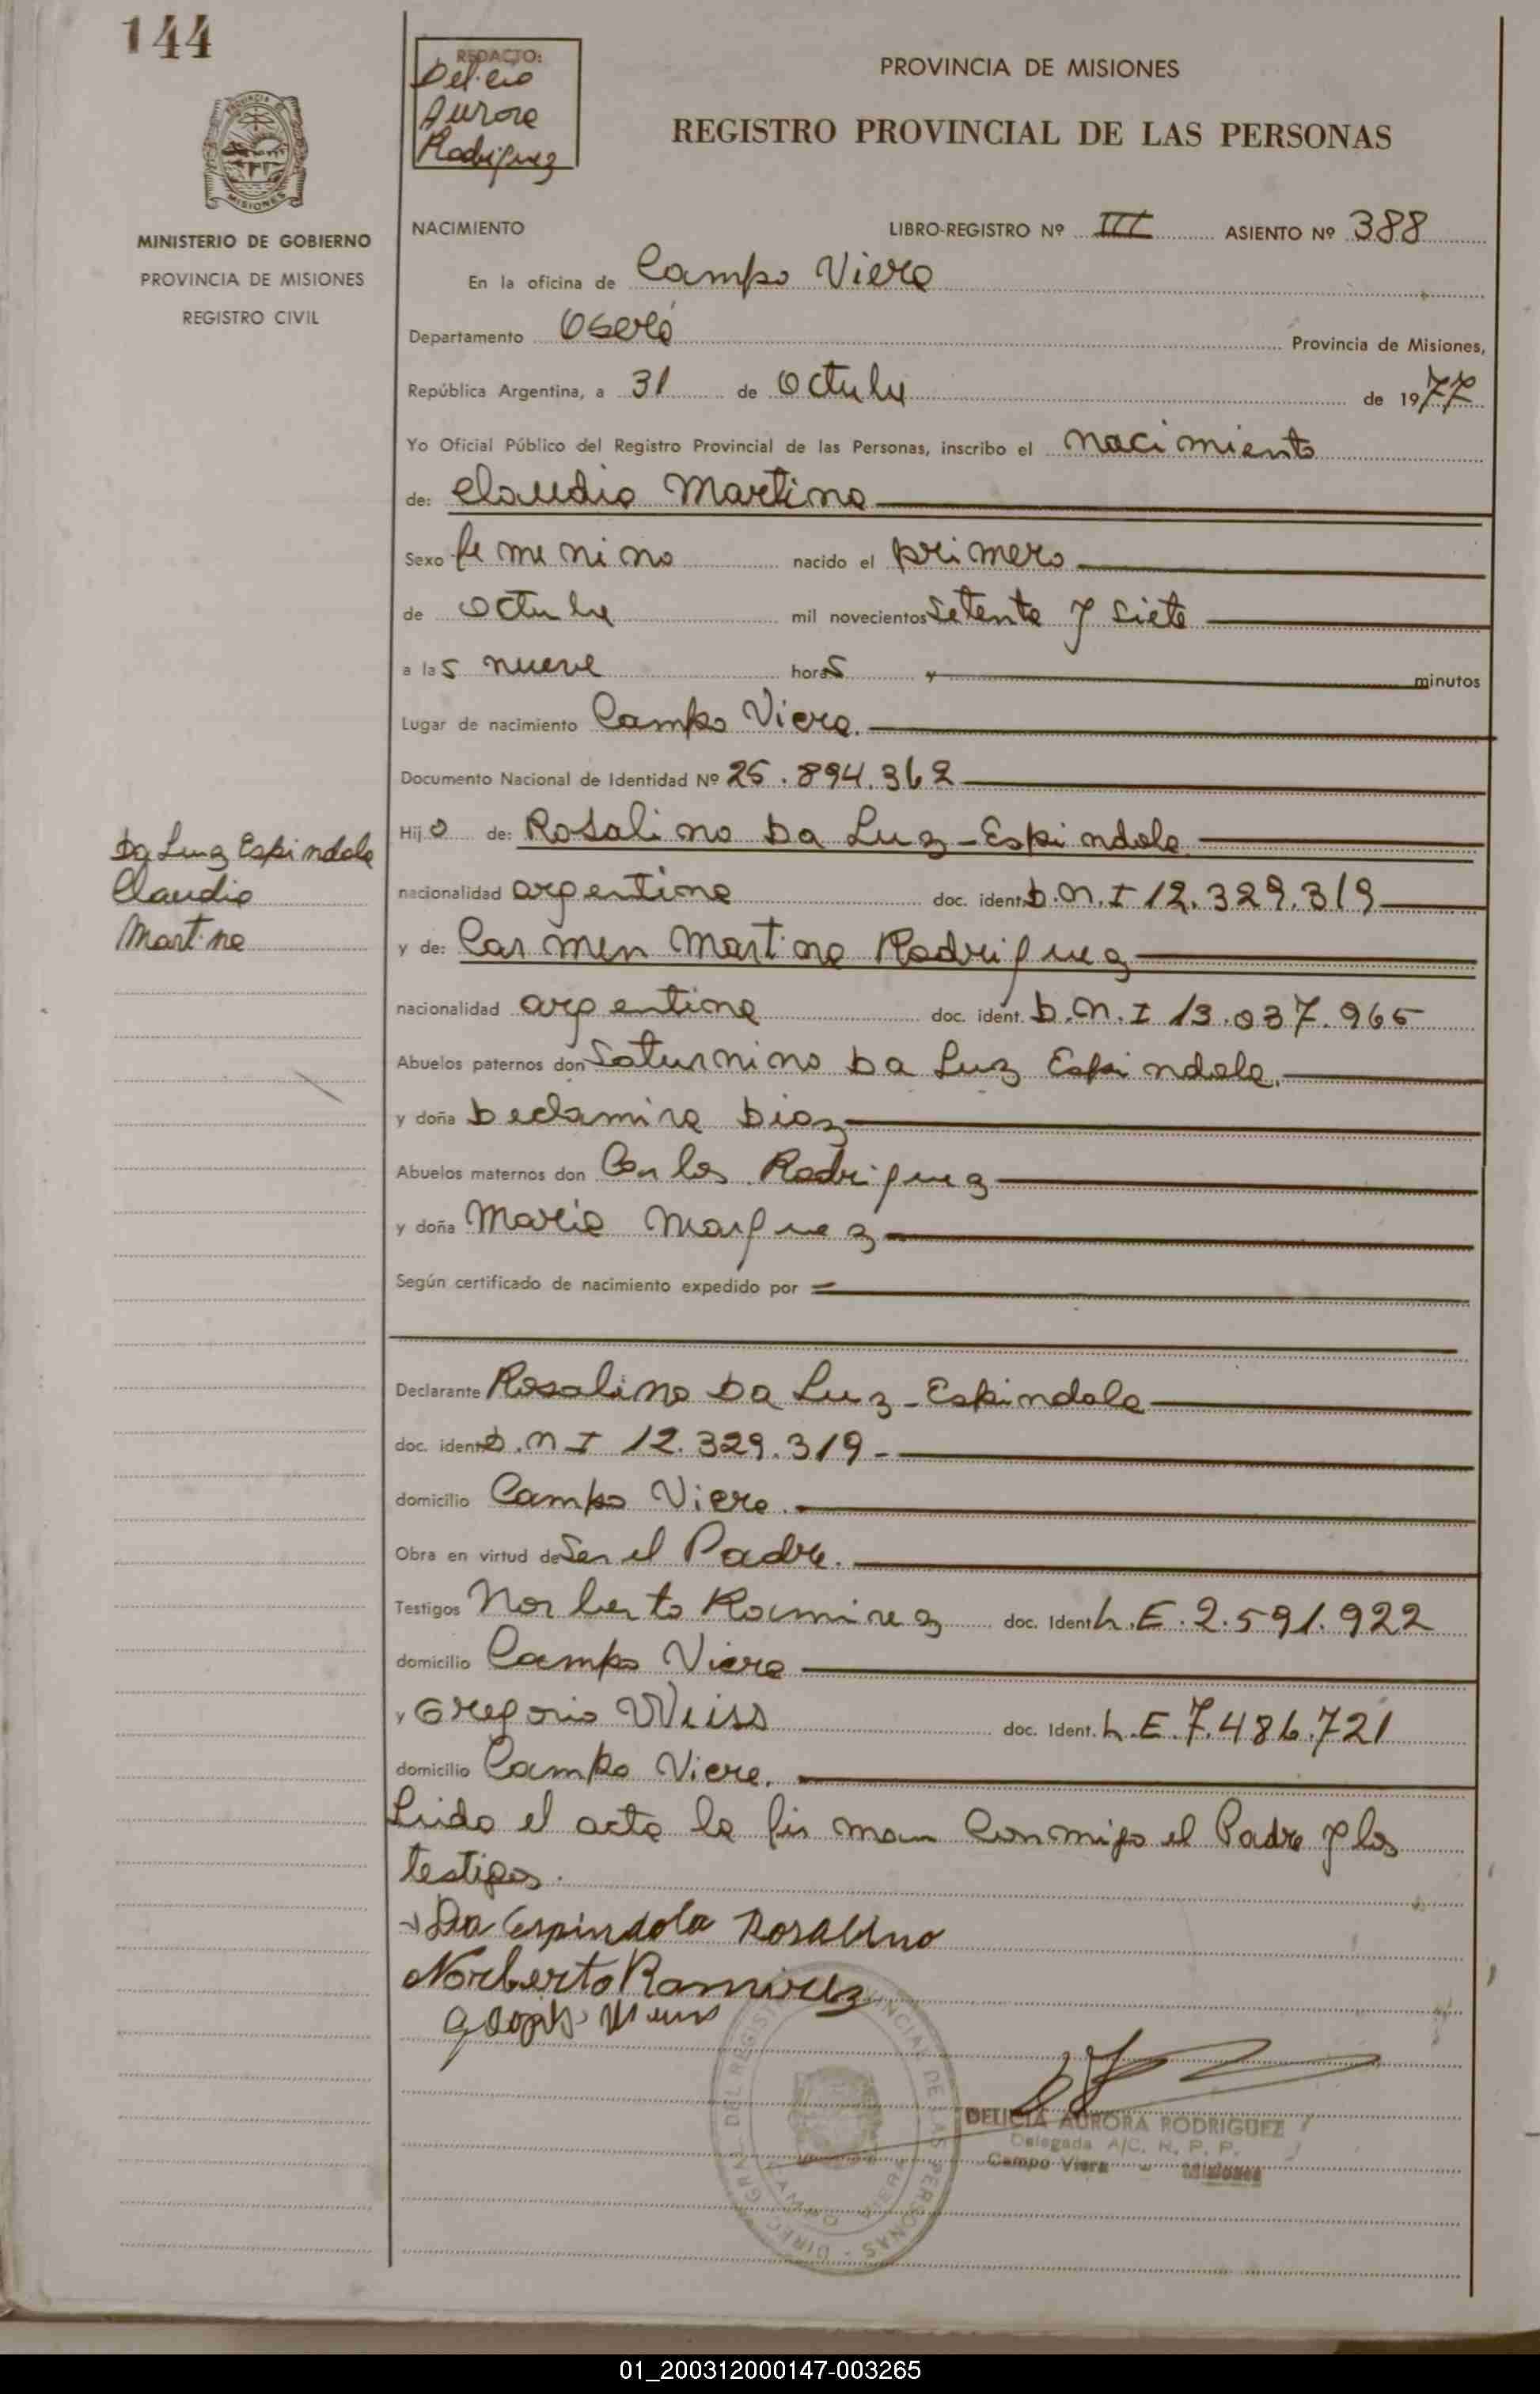 144
REDACTO:
Delicia
Aurora
Rodriguez
PROVINCIA DE MISIONES
REGISTRO PROVINCIAL DE LAS PERSONAS
MISIONES
MINISTERIO DE GOBIERNO
PROVINCIA DE MISIONES
REGISTRO CIVIL
NACIMIENTO LIBRO-REGISTRO Nº III ASIENTO Nº 388
En la oficina de Campo Viera
Departamento Oberá Provincia de Misiones,
República Argentina, a 31 de Octubre de 1977
Yo Oficial Público del Registro Provincial de las Personas, inscribo el nacimiento
de: Claudia Martina
Sexo femenino nacido el primero
de octubre mil novecientos setenta y siete
a las nueve horas y minutos
Lugar de nacimiento Campo Viera.
Documento Nacional de Identidad Nº 25.894.362
Hija de: Rosalino Da Luz-Espindola
Da Luz Espindola
Claudia
Martina
nacionalidad argentina doc. ident. D.N.I 12.329.319
y de: Carmen Martina Rodriguez
nacionalidad argentina doc. ident. D.N.I 13.037.965
Abuelos paternos don Saturnino Da Luz Espindola.
y doña Declamira Diaz
Abuelos maternos don Carlos Rodriguez
y doña Maria Marquez
Según certificado de nacimiento expedido por
Declarante Rosalino Da Luz-Espindola
doc. ident. D.N I 12.329.319-
domicilio Campo Viera.
Obra en virtud de Ser el Padre.
Testigos Norberto Ramirez doc. Ident. L.E.2.591.922
domicilio Campo Viera
y Gregorio Weiss doc. Ident. L.E.7.486.721
domicilio Campo Viera.
Leida el acta la firman conmigo el Padre y los
testigos.
Da Espindola Rosalino
Norberto Ramirez
DELICIA AURORA RODRIGUEZ
Delegada A/C. R. P. P.
Campo Viera - Misiones
01_200312000147-003265